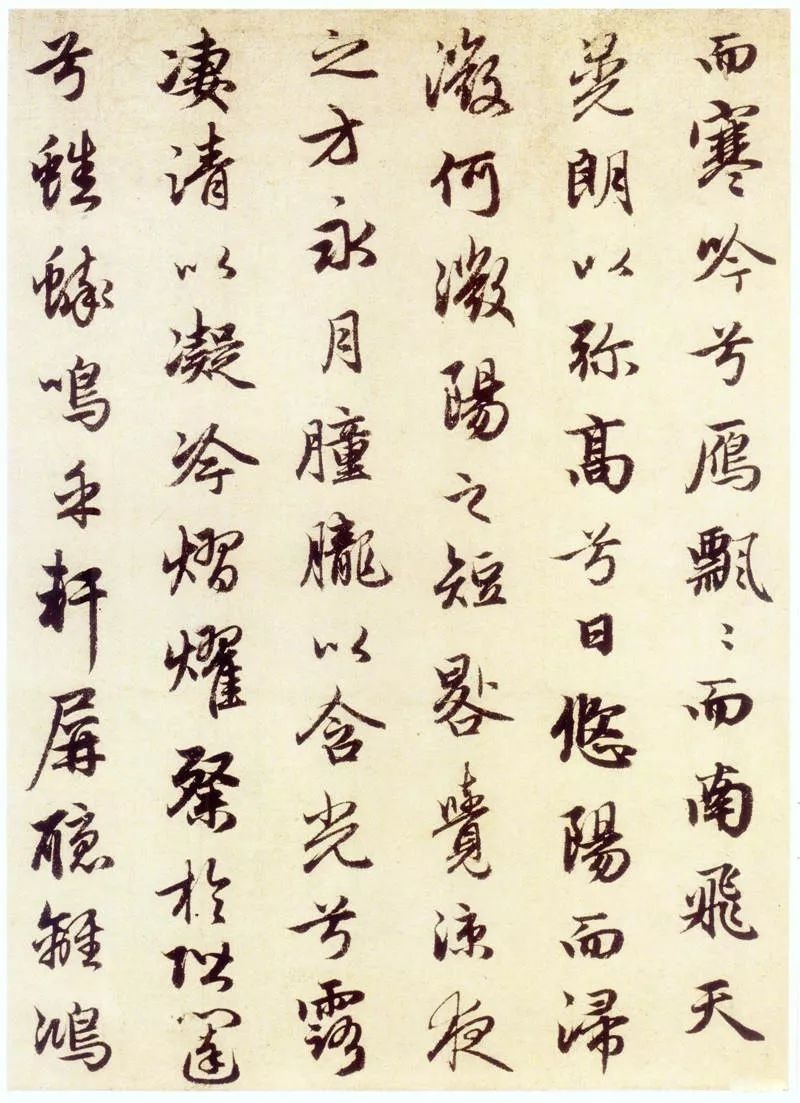 而寒吟兮鴈飄〻而南飛天
晃朗以弥高兮日悠陽而浸
微何微陽之短晷覺涼夜
之方永月朣朧以含光兮露
凄清以凝冷熠燿粲於階闥
兮蟋蟀鳴乎軒屏聽離鴻